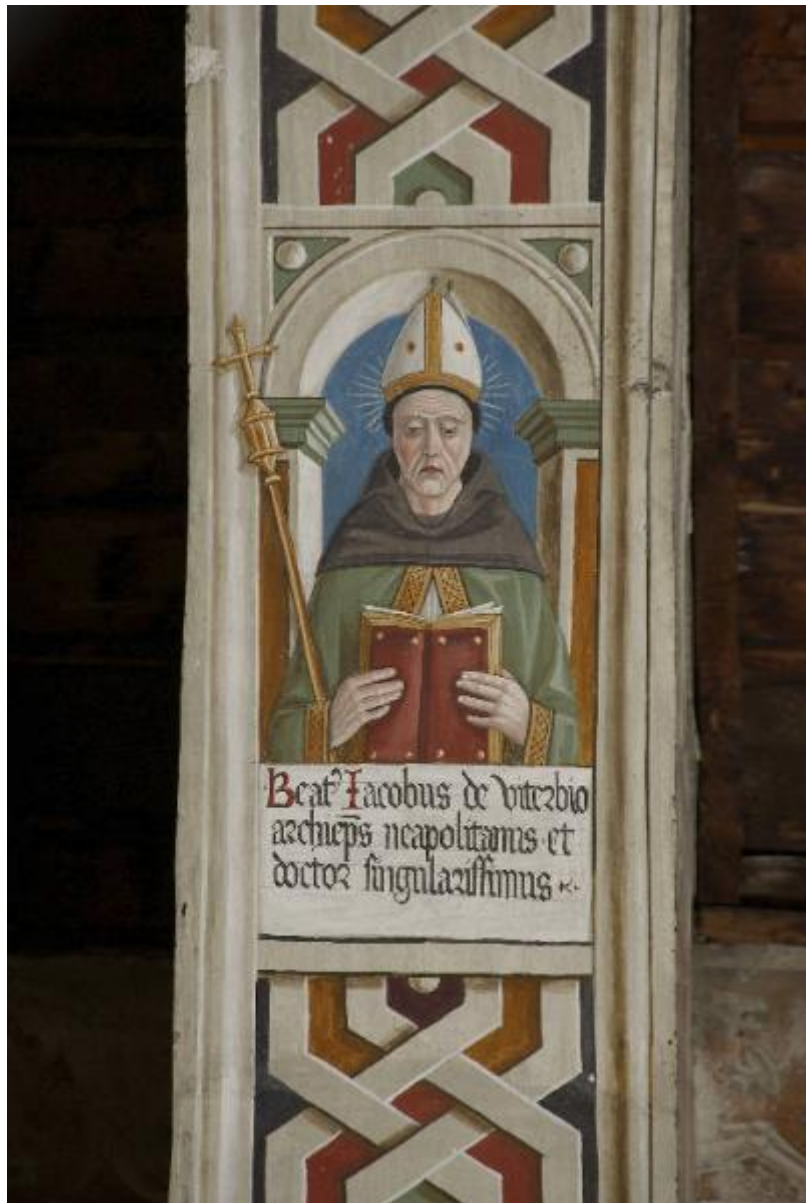 Beatꝰ Iacobus de viterbio
archiep̅s neapolitanus et
doctor singularissimus